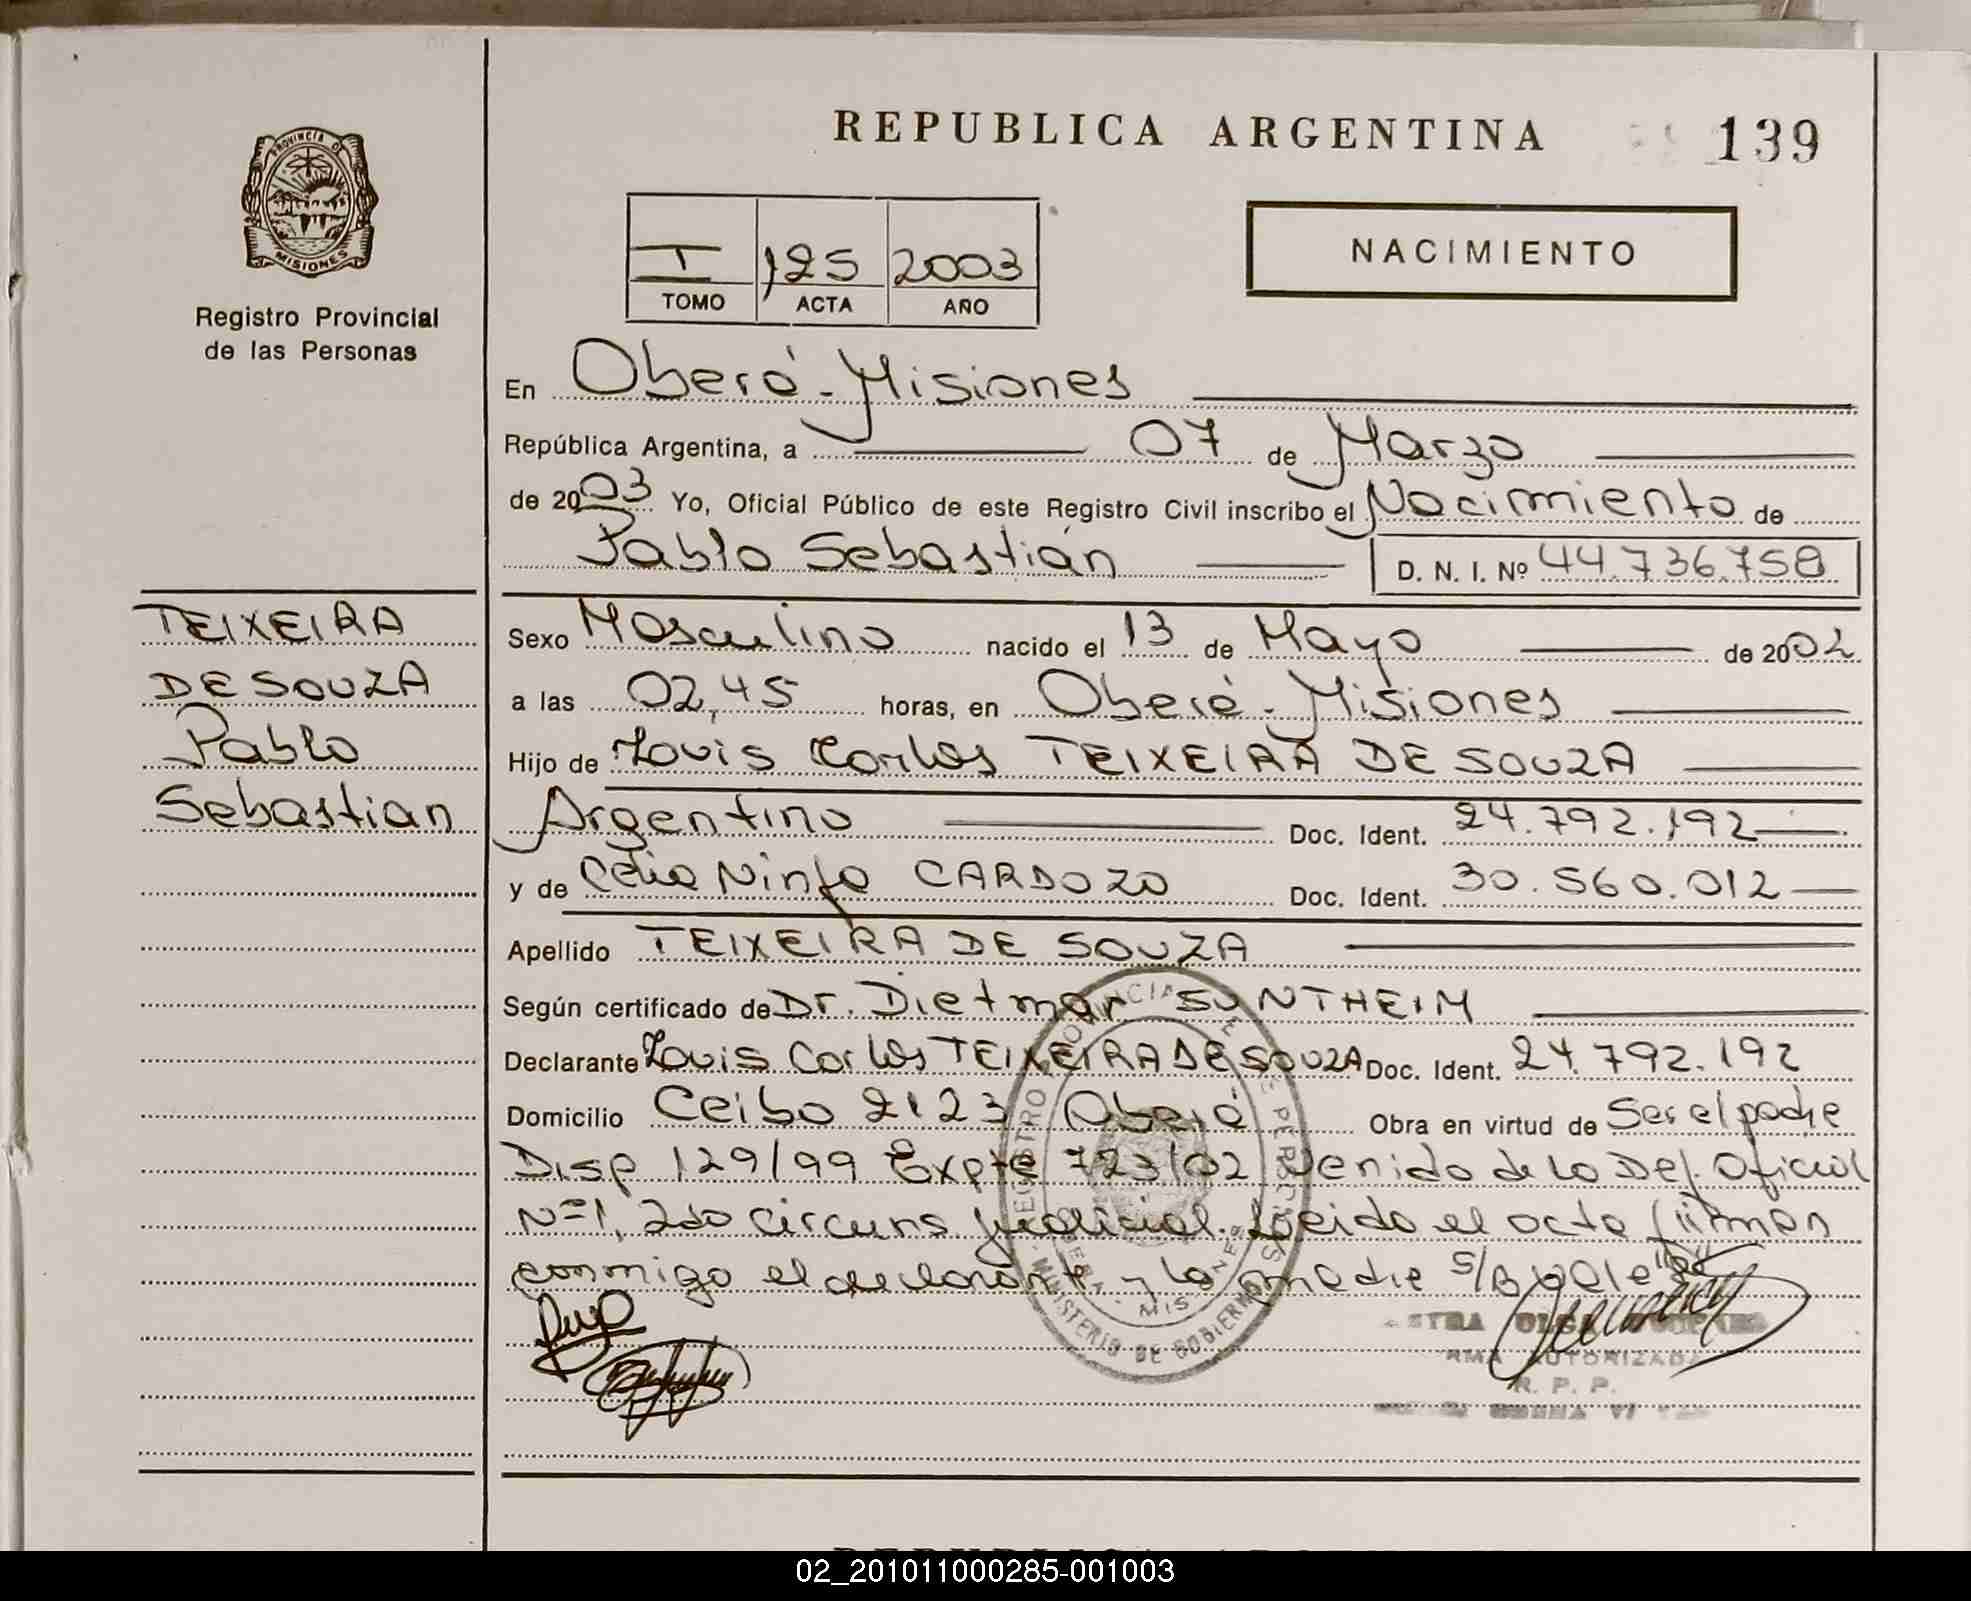 REPUBLICA ARGENTINA
139
PROVINCIA DE
MISIONES
Registro Provincial
de las Personas
I 125 2003
TOMO ACTA AÑO
NACIMIENTO
En Oberá - Misiones
República Argentina, a 07 de Marzo
de 2003 Yo, Oficial Público de este Registro Civil inscribo el Nacimiento de
Pablo Sebastián D. N. I. Nº 44.736.758
TEIXEIRA
DE SOUZA
Pablo
Sebastian
Sexo Masculino nacido el 13 de Mayo de 2002
a las 02,45 horas, en Oberá - Misiones
Hijo de Louis Carlos TEIXEIRA DE SOUZA
Argentino Doc. Ident. 24.792.192
y de Celia Ninfa CARDOZO Doc. Ident. 30.560.012
Apellido TEIXEIRA DE SOUZA
Según certificado de Dr. Dietmar SUNTHEIM
Declarante Louis Carlos TEIXEIRA DE SOUZA Doc. Ident. 24.792.192
Domicilio Ceibo 2123 Oberá Obra en virtud de Ser el padre
Disp 129/99 Expte 723/02 venido de la Def. Oficial
Nº1, 2da circuns judicial. Leído el acta firman
conmigo el declarante y la madre S/B Vale
MINISTERIO DE GOBIERNO
FIRMA AUTORIZADA
R. P. P.
02_201011000285-001003